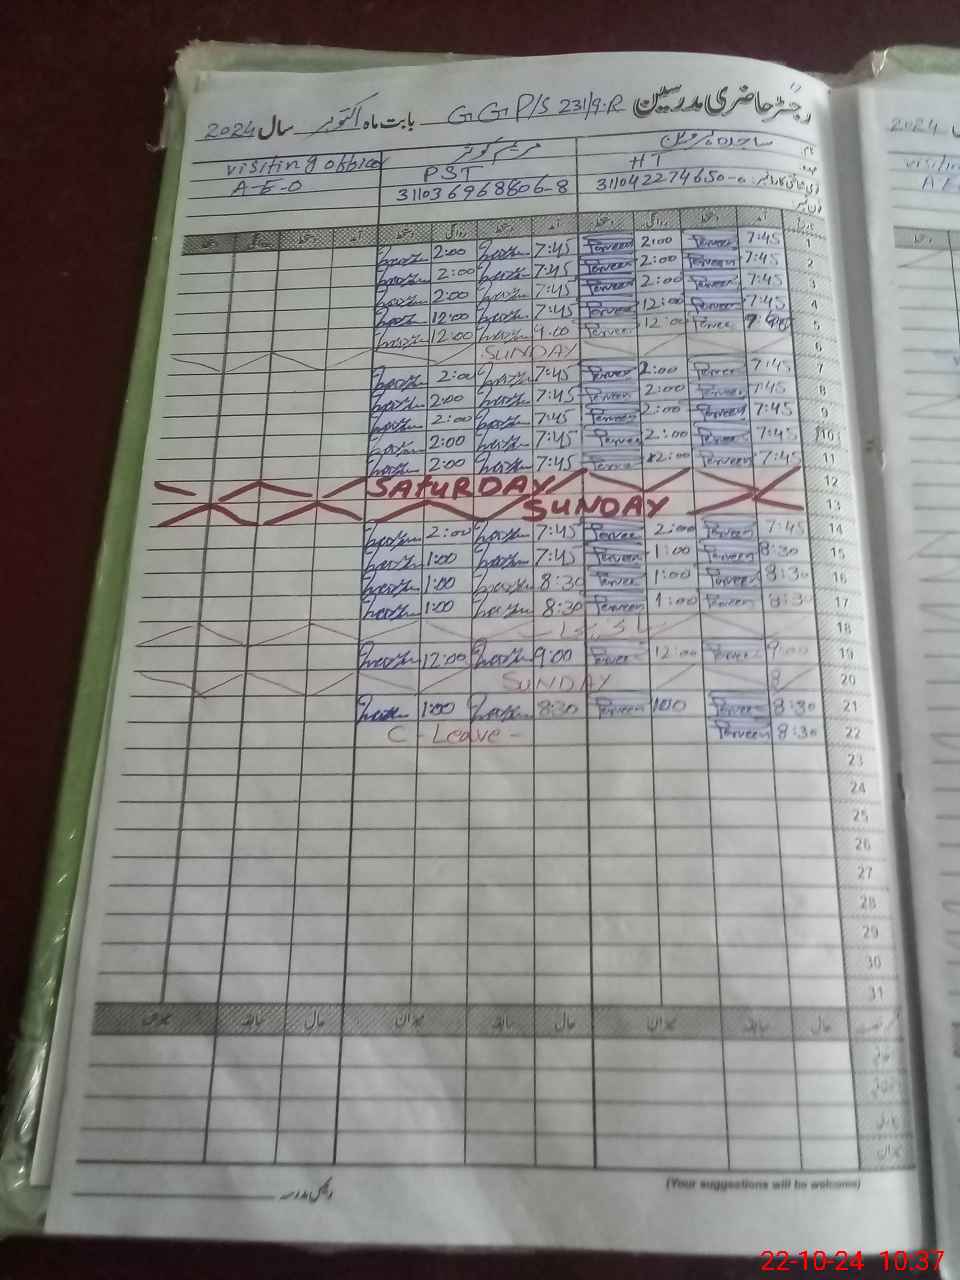 رجسٹر حاضری مدرسین GGP/S 231/9.R بابت ماہ اکتوبر سال 2024
نام ساجدہ پروین مریم کوثر visiting officer
عہدہ HT PST A-E-O
31104 2274650-0 31103 6968806-8
تاریخ آمد دستخط روانگی دستخط آمد دستخط روانگی دستخط آمد دستخط روانگی دستخط
1 7:45 Perveen 2:00 Perveen 7:45 2:00
2 7:45 Perveen 2:00 Perveen 7:45 2:00
3 7:45 Perveen 2:00 Perveen 7:45 2:00
4 7:45 Perveen 12:00 Perveen 7:45 12:00
5 Perveen 12:00 Perveen 9.00 12:00
6 SUNDAY
7 7:45 Perveen 2:00 Perveen 7:45 2:00
8 7:45 Perveen 2:00 Perveen 7:45 2:00
9 7:45 Perveen 2:00 Perveen 7:45 2:00
10 7:45 Perveen 2:00 Perveen 7:45 2:00
11 7:45 Perveen 2:00 Perveen 7:45 2:00
12 SATURDAY
13 SUNDAY
14 7:45 Perveen 2:00 Perveen 7:45 2:00
15 8:30 Perveen 1:00 Perveen 7:45 1:00
16 8:30 Perveen 1:00 Perveen 8:30 1:00
17 8:30 Perveen 1:00 Perveen 8:30 1:00
18
19 9:00 Perveen 12:00 Perveen 9:00 12:00
20 SUNDAY
21 8:30 Perveen 1:00 Perveen 8:30 1:00
22 8:30 Perveen C - Leave -
23
24
25
26
27
28
29
30
31
حال سابقہ میزان حال سابقہ میزان حال سابقہ میزان
اتفاقی
میزان
رئیس مدرسہ
(Your suggestions will be welcome)
22-10-24 10.37